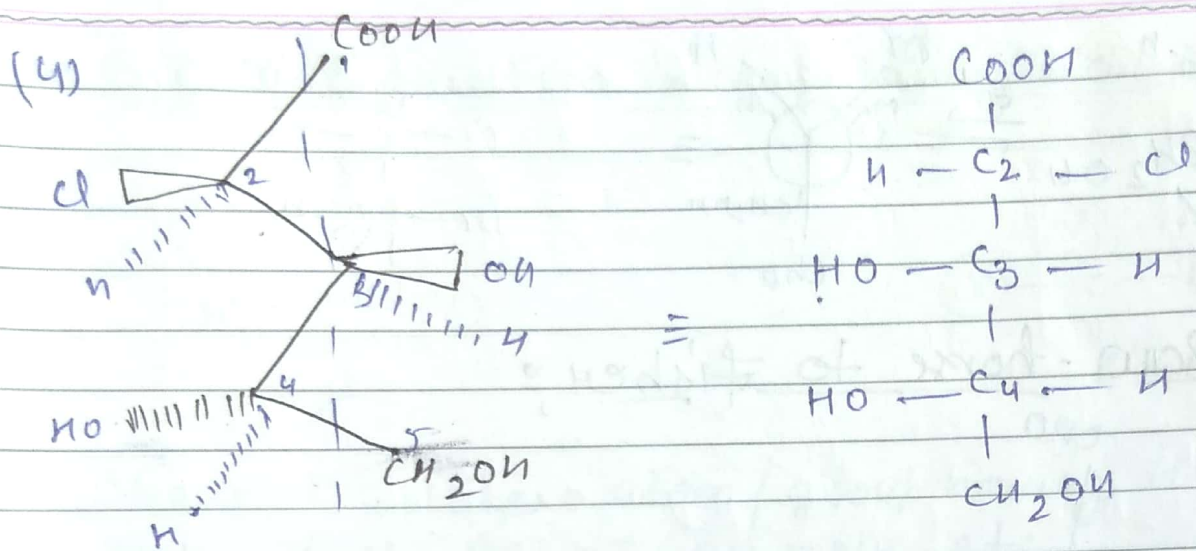 (4)
COOH
1
Cl
2
H
3
OH
H
HO
4
H
5
CH2OH
≡
COOH
H - C2 - Cl
HO - C3 - H
HO - C4 - H
CH2OH